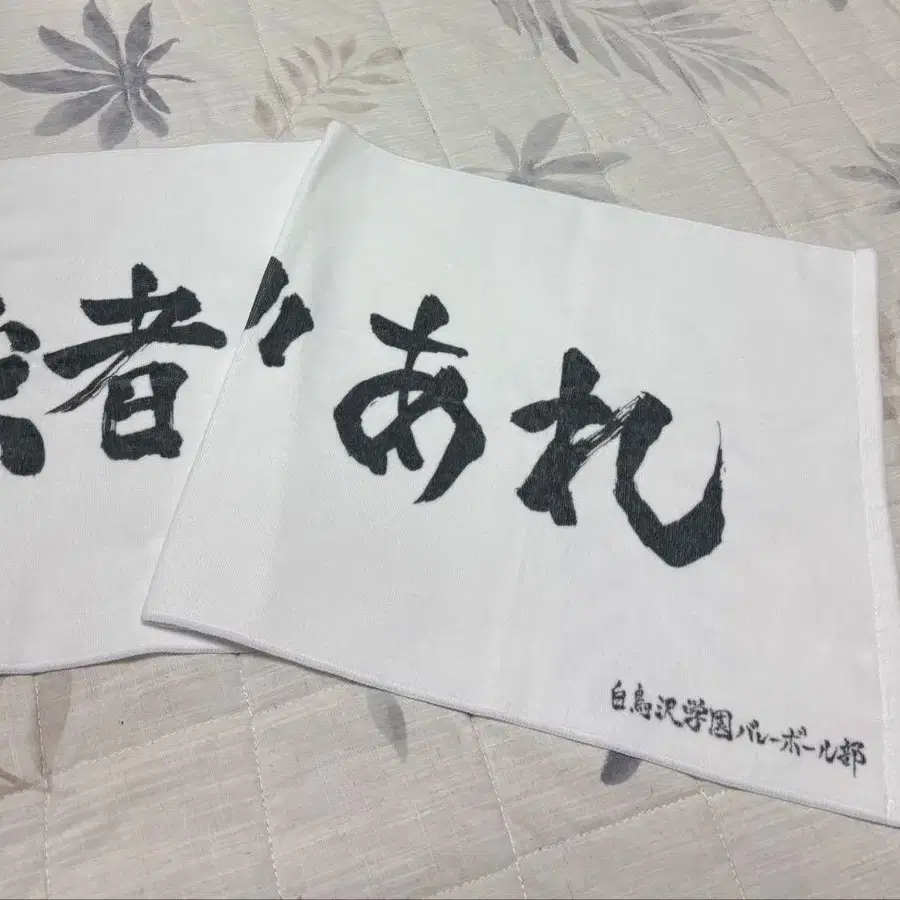 者 あれ
白鳥沢学園バレーボール部